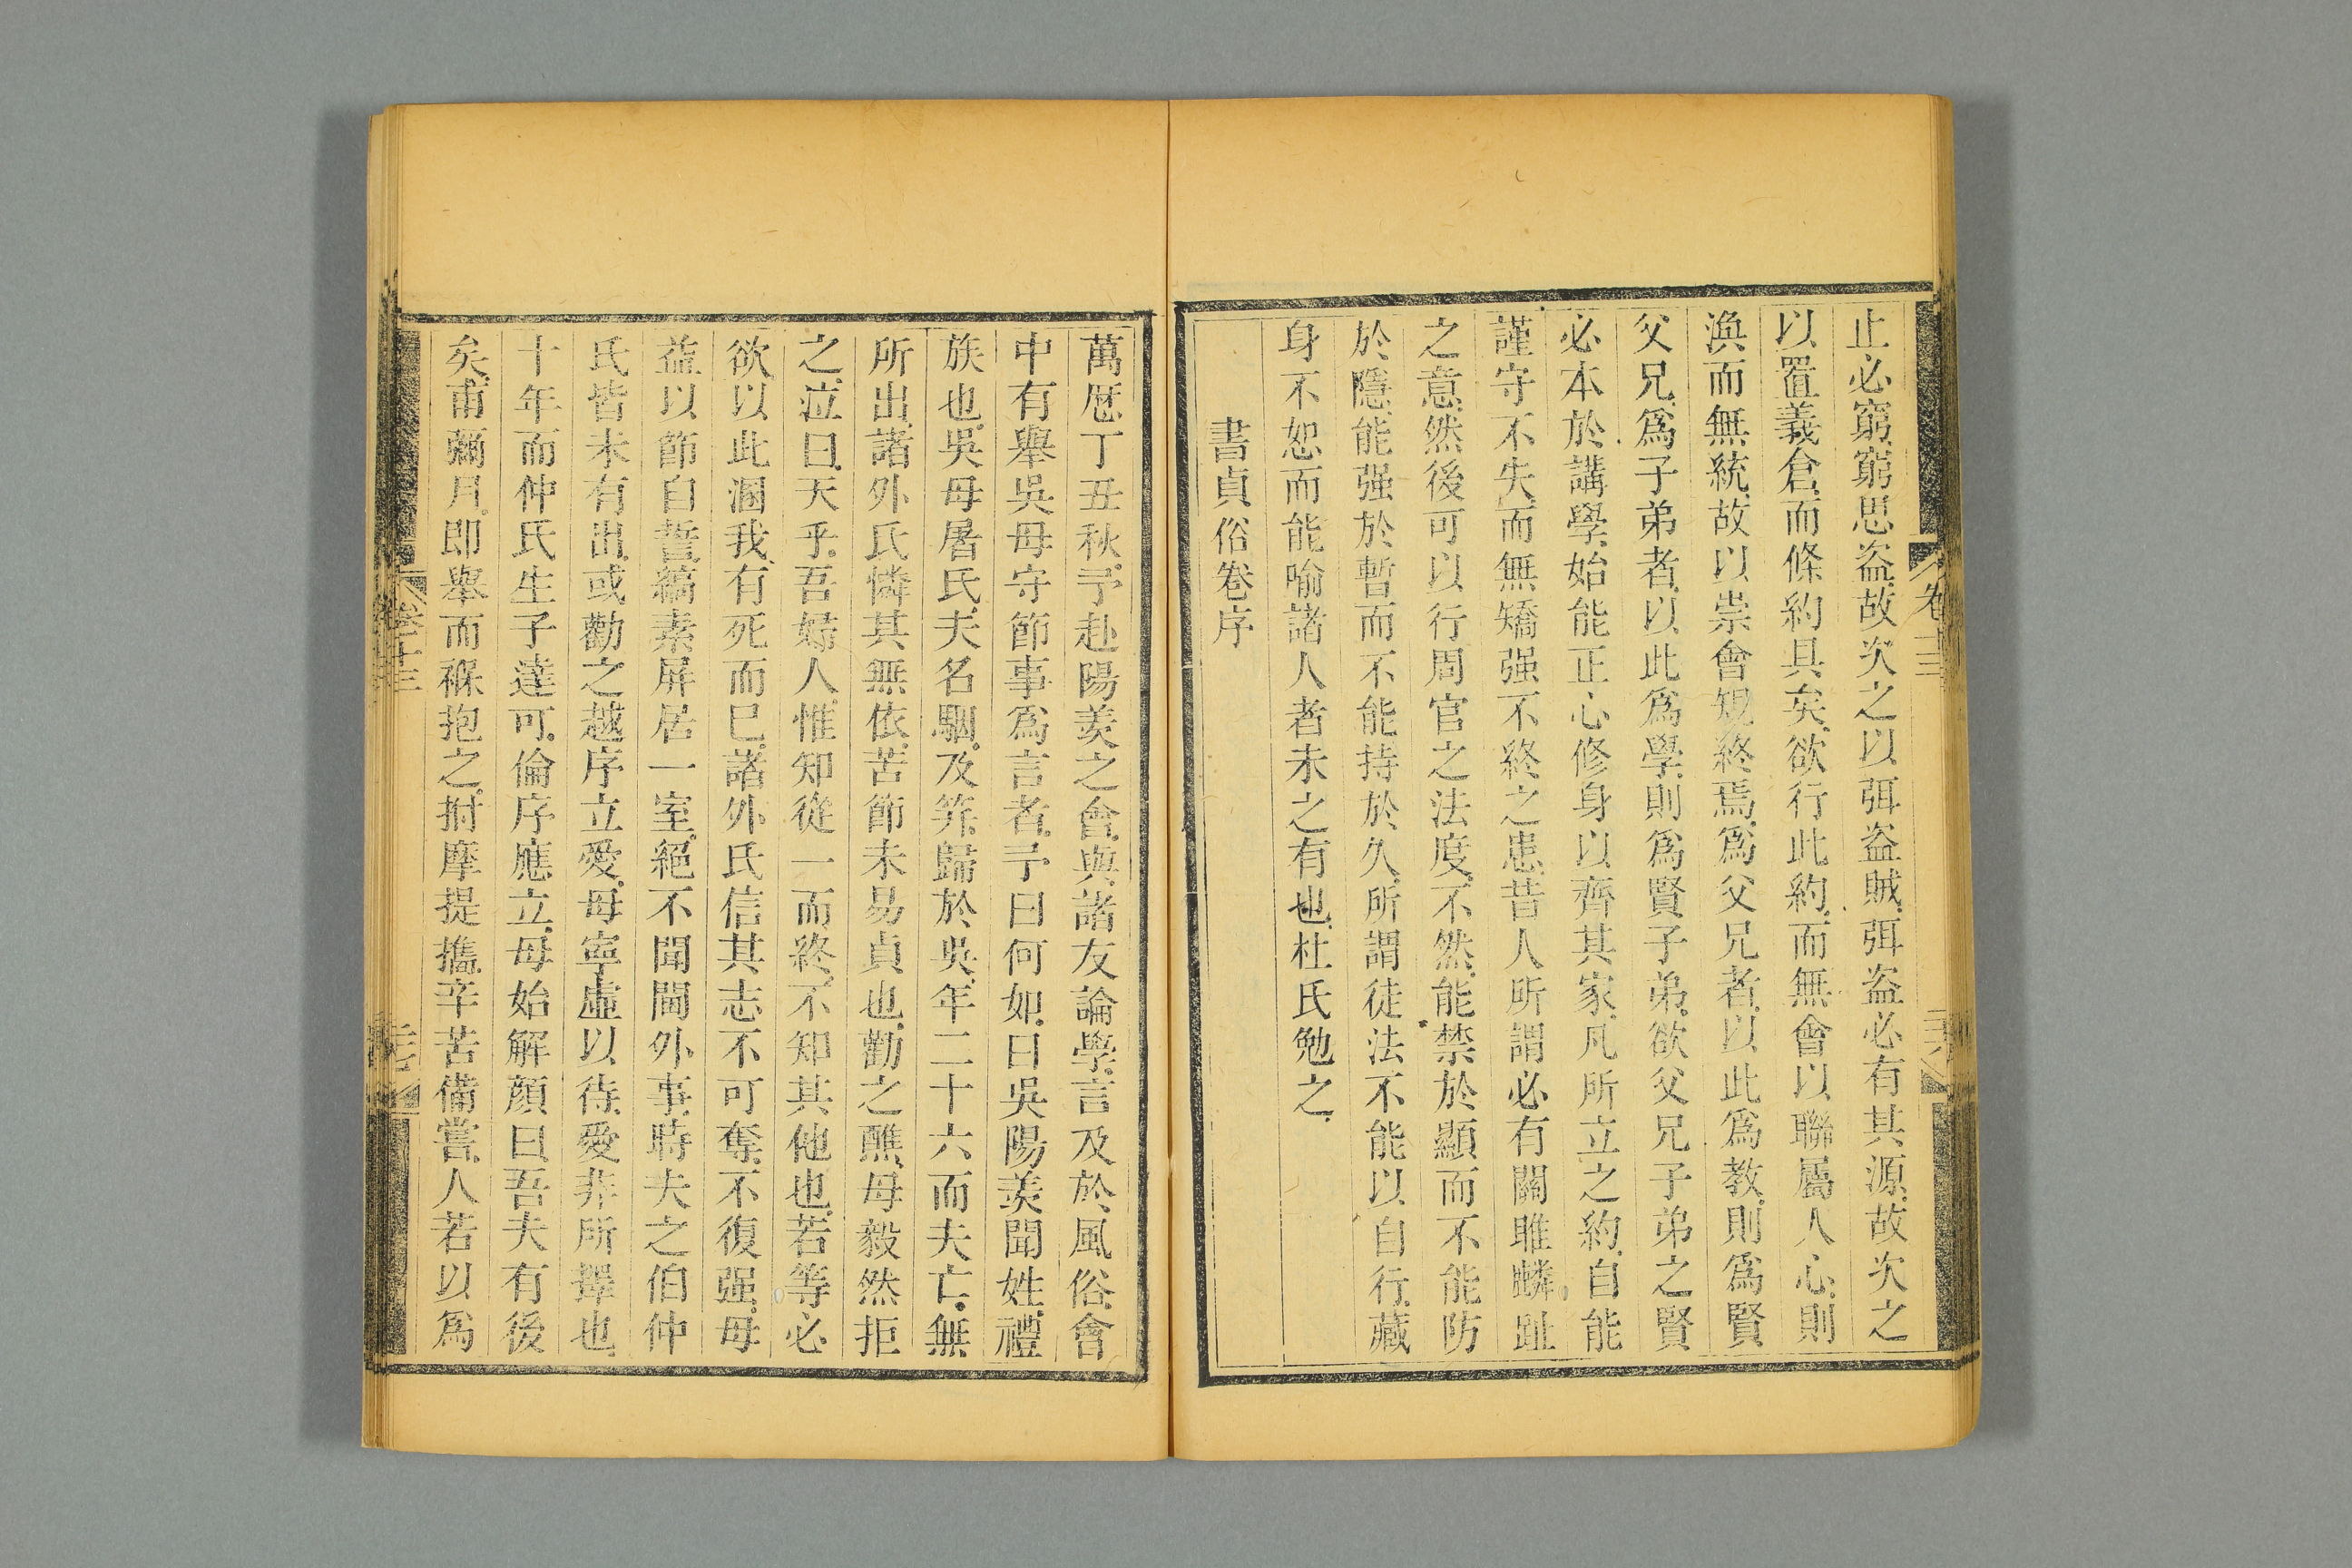 止必窮、窮思盗、故次之以弭盗賊、弭盗必有其源、故次之
以置義倉、而條約具矣、欲行此約、而無會以聯屬人心、則
渙而無統、故以崇會規終焉、爲父兄者、以此爲教、則爲賢
父兄、爲子弟者、以此爲學、則爲賢子弟、欲父兄子弟之賢
必本於講學、始能正心修身以齊其家、凡所立之約、自能
謹守不失、而無矯强不終之患、昔人所謂必有關雎麟趾
之意、然後可以行周官之法度、不然、能禁於顯而不能防
於隱、能强於暫而不能持於久、所謂徒法不能以自行、藏
身不恕而能喻諸人者未之有也、杜氏勉之、
書貞俗卷序
萬厯丁丑秋、予赴陽羨之會、與諸友論學、言及於風俗、會
中有舉吳母守節事爲言者、予曰何如、曰吳陽羨聞姓、禮
族也、吳母屠氏、夫名駰、及笄、歸於吳、年二十六而夫亡、無
所出、諸外氏憐其無依、苦節未易貞也、勸之醮、母毅然拒
之、泣曰、天乎、吾婦人、惟知從一而終、不知其他也、若等必
欲以此溷我、有死而已、諸外氏信其志不可奪、不復强、母
益以節自誓、縞素屏居一室、絕不聞閫外事、時夫之伯仲
氏皆未有出、或勸之越序立愛、母寧虛以待、愛非所擇也、
十年而仲氏生子達可、倫序應立、母始解顔曰、吾夫有後
矣、甫彌月、即舉而褓抱之、拊摩提攜、辛苦備嘗、人若以爲
卷十三
卷十三